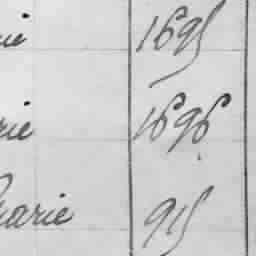 rie 1695
rie 1696
Marie 915